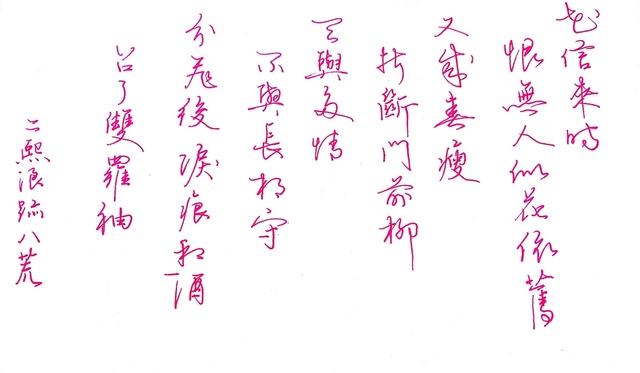 花信來時
恨無人似花依舊
又成春瘦
折斷門前柳
天與多情
不與長相守
分飛後淚痕和酒
占了雙羅袖
二熙浪跡八荒